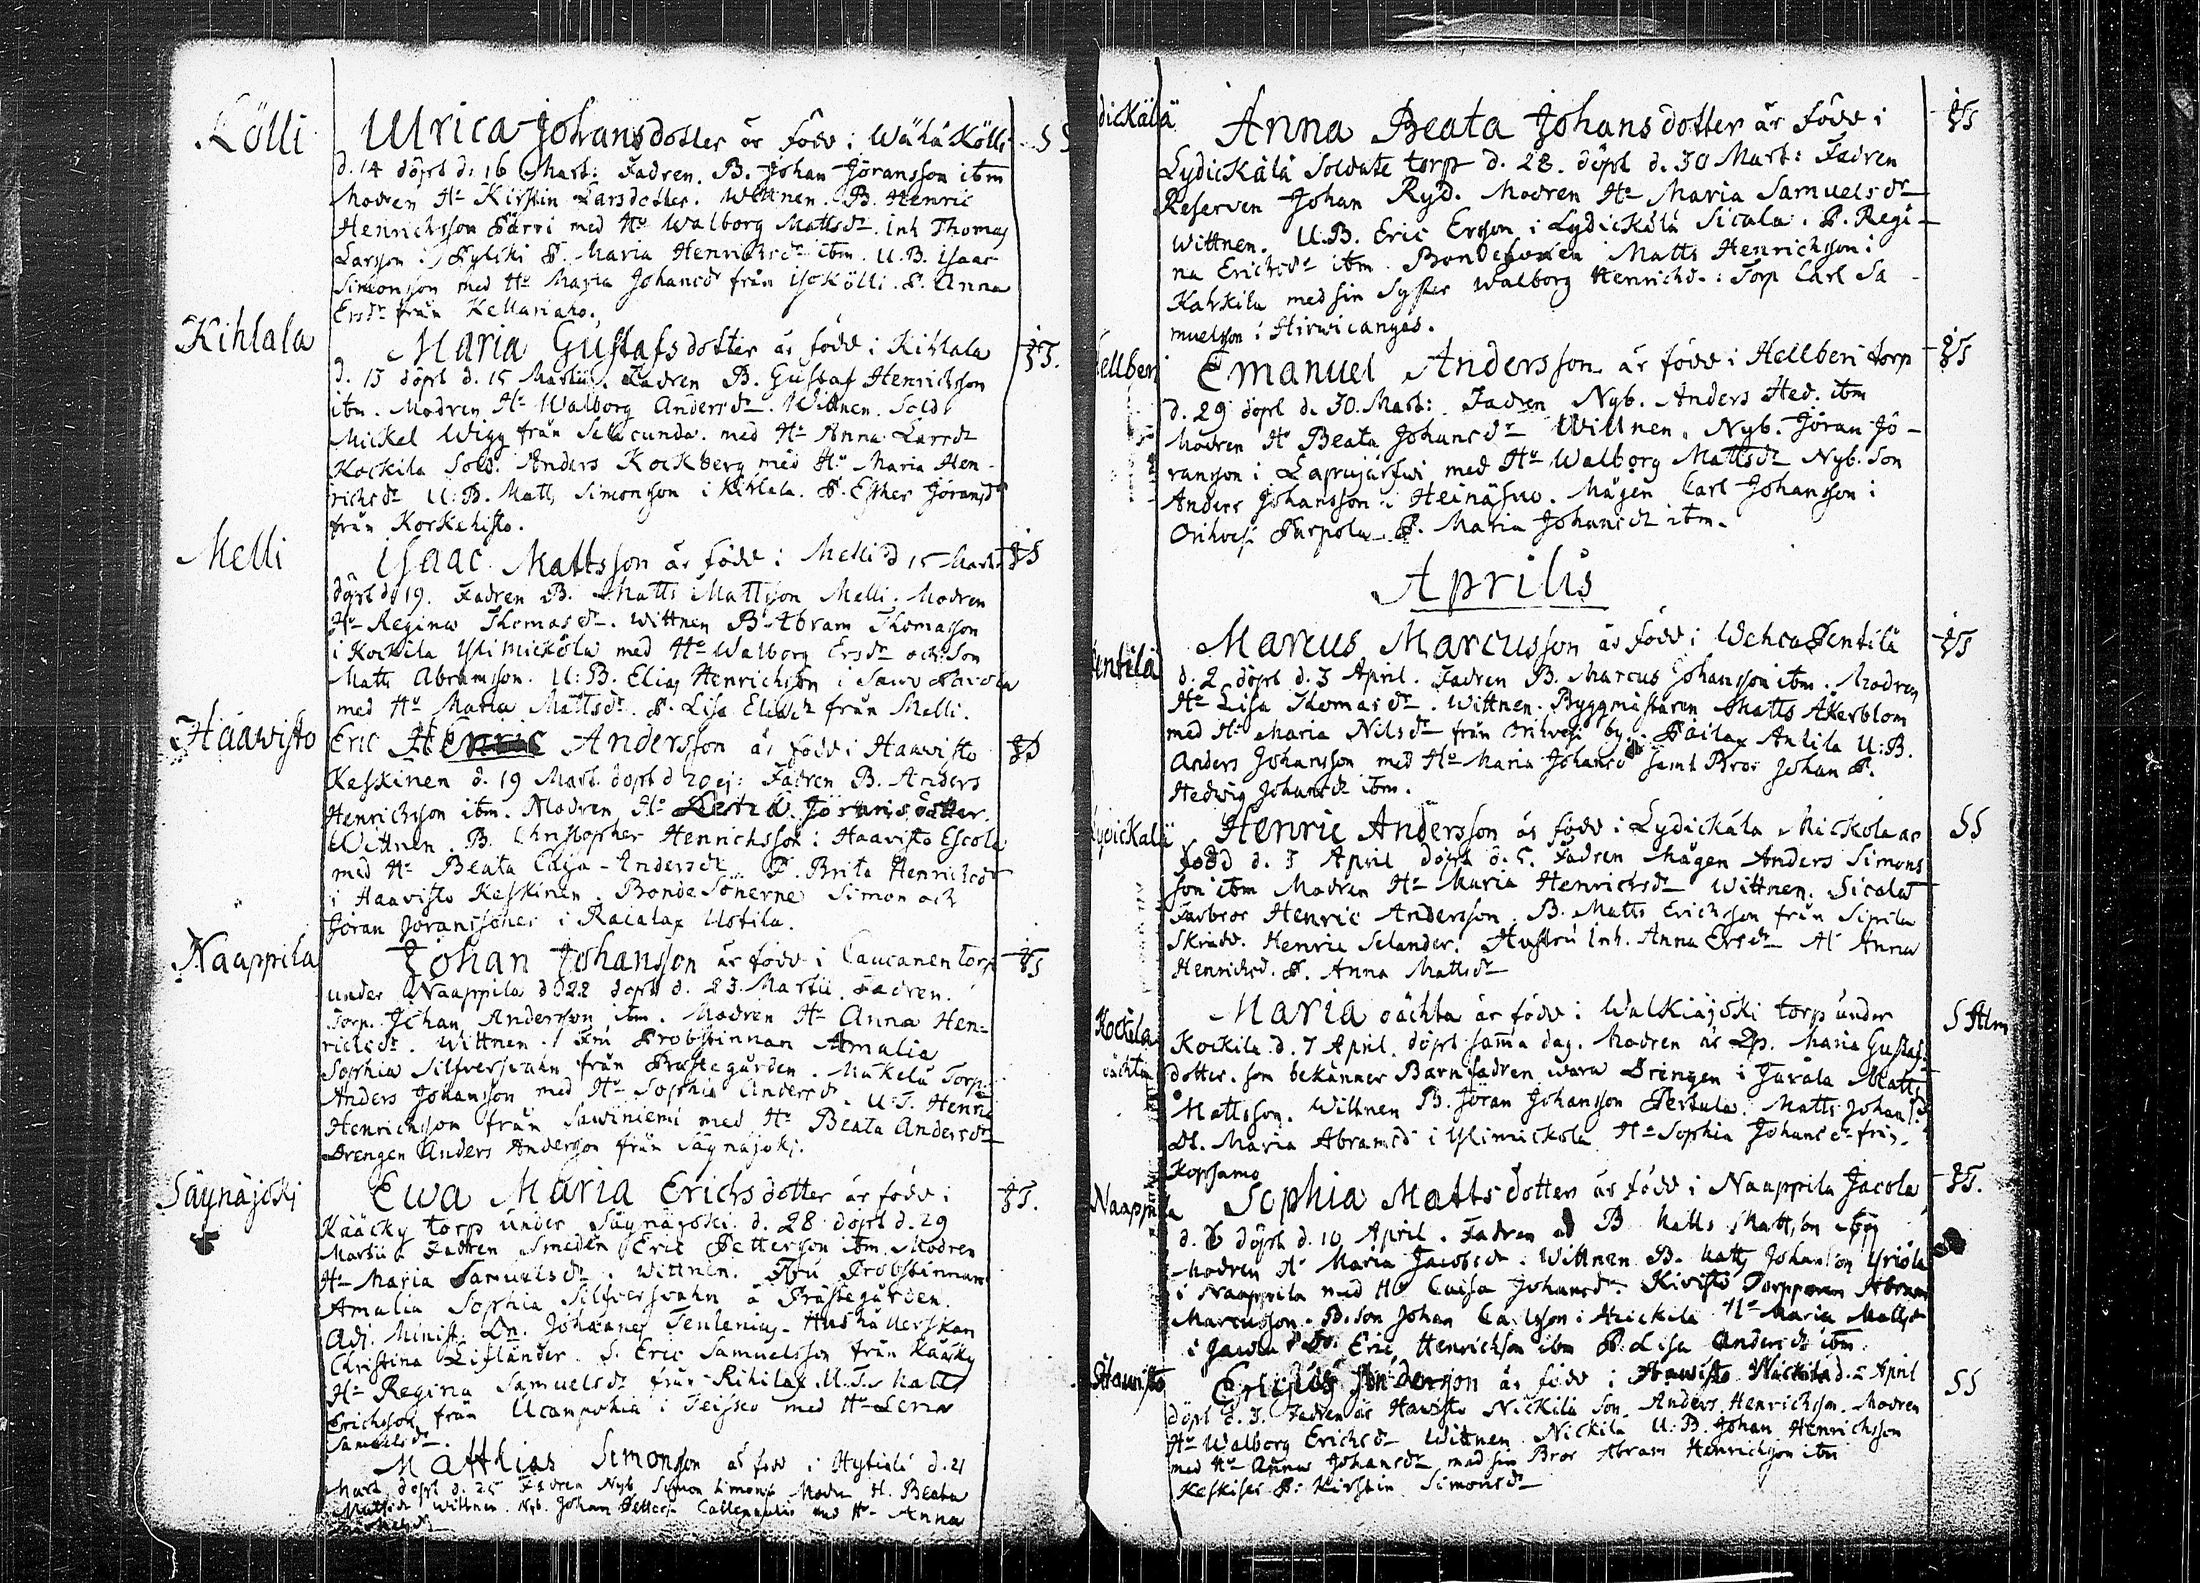 Kölli
Ulrica Johansdotter är född i Wähä Kölli
d. 14 döpt d. 16 Mart: Fadren. B. Johan Jöransson ibm
Modren Hu Kirstin Larsdotter. Wittnen. B. Henric
Henrichsson Pärri med Hu Walborg Mattsdr. Inh Thomas
Larsson i Pylski P. Maria Henrichsdr ibm. U.B. Isaac
Simonsson med Hu Maria Johansdr från IsoKölli. P. Anna
Ersdr från Kellariaho.
Kihlala
Maria Gustafsdotter är född i Kihlala
d. 13 döpt d. 15 Martii. Fadren B. Gustaf Henrichsson
ibm. Modren Hu Walborg Andersdr. Wittnen. Sold.
Mickel Wigg från med Hu Anna Larsdr
Kockila Sold. Anders Kockberg med Hu Maria Hen-
richsdr U:B. Matts Simonsson i Kihlala. P. Esther Jöransdr
från Korkehisto.
Melli
Isaac Mattsson är född i Melli d 15 Marti
döpt d. 19. Fadren B. Matts Mattsson Melli. Modren
Hu Regina Thomasdr. Wittnen B. Abram Thomasson
i Kockila Ylimickola med Hu Walborg Ersdr och Son
Matts Abramsson. U:B. Elias Henrichsson i
med Hu Maria Mattsdr. P. Lisa Eliædr från Melli.
Haawisto
Eric Henric Andersson är född i Haawisto
Keskinen d. 19 Mart döpt d 20 ej: Fadren B. Anders
Henrichsson ibm. Modren Hu Jöransdotter.
Wittnen. B. Christopher Henrichsson i Haavisto Escola
med Hu Beata Caja-Andersdr P. Brita Henrichsdr
i Haavisto Keskinen. Bonde Sönerne Simon och
Jöran Jöranssöner i Racalax Ustila.
Naappila
Johan Johansson är född i Caucanen torp
under Naappila d 22 döpt d. 23. Martii. Fadren.
Torp. Johan Andersson ibm. Modren Hu Anna Hen-
richsdr. Wittnen. Fru Probstinnan Amalia
Sophia Silfversvahn från Prästegården. Mäkelä Torp:
Anders Johansson med Hu Sophia Andersdr. U:T. Henric
Henrichsson från Sawiniemi med Hu Beata Andersdr
Drengen Anders Andersson från Säynäjoki.
Säynäjoki
Ewa Maria Erichsdotter är född i
Kääcky torp under Säynäjoki. d. 28 döpt d. 29
Martii. Fadren Smeden Eric Pettersson ibm. Modren
Hu Maria Samuelsdr. Wittnen. Fru Probstinnan
Amalia Sophia Silfversvahn å Prästegården.
Adj. Minist. Dn. Johannes Tenlenius. Hushållerskan
Christina Lifländer. S. Eric Samuelsson från Kääcky
Hu Regina Samuelsdr från Rihilax U.T. Matts
Erichsson från Ucanpohia i Teisko med Hu Lena
Samuelsdr.
Matthias Simonsson är född i Hytiälä d. 21
Mart döpt d. 25 Fadren Nyb. Simon Simons Modr H. Beata
Mattsdr Wittnen. Nyb. Johan Petters med Hu Anna
SS
dickälä
Anna Beata Johansdotter är född i
Lydickälä Soldate torp d. 28. döpt d. 30 Mart: Fadren
Reserven Johan Ryd. Modren Hu Maria Samuelsdr
Wittnen. U.B. Eric Ersson i Lydickälä Sicala. P. Regi-
na Erichsdr ibm. Bondesonen Matts Henrichsson i
Karkila med sin Syster Walborg Henrichsd.: Torp Carl Sa
muelsson i Hirwicangas.
Hellberi
Emanuel Andersson är född i Hellberi torp
d. 29 döpt d. 30. Mart: Fadren Nyb. Anders Hed. ibm
Modren Hu Beata Johansdr Wittnen. Nyb. Jöran Jö-
ransson i Lapujärfwi med Hu Walborg Mattsdr Nyb. Son
Anders Johansson i Heinäsuo. Mågen Carl Johansson i
Orihvesi Parpola P. Maria Johansdr ibm.
Aprilis
Pentilä
Marcus Marcusson är född i Wehca Pentilä
d. 2. döpt d. 3 April. Fadren B. Marcus Johansson ibm. Modren
Hu Lisa Thomasdr. Wittnen. Byggmästaren Matts Åkerblom
med Hu Maria Nilsdr från Orihvesi by. Päilax Anlila U:B.
Anders Johansson med Hu Maria Johansdr samt Bror Johan P.
Hedvig Johansdr ibm.
Lydickälä
Henric Andersson är född i Lydickälä Mickola
född d. 3 April döpt d. 5. Fadren Mågen Anders Simons
son ibm Modren Hu Maria Henrichsdr Wittnen. Sicala
Farbror Henric Andersson. B. Matts Erichsson från Sipila
Skrädd. Henric Selander. Hustru Inh. Anna Ersdr H Anna
Henrichsd. P. Anna Mattsdr
SS
Kockila
oächta
Maria oächta är född i Walkiajoki torp under
Kockila d. 7 April. döpt samma dag. Modren är Lp. Maria Gustafs-
dotter. som bekänner Barnfadren wara Drengen i Jurala Matts
Mattsson. Wittnen B. Jöran Johansson Pertula. Matts Johans
Dl. Maria Abramsd i Ylimickola Hu Sophia Johansdr från
Kopsamo
Naappila
Sophia Mattsdotter är född i Naappila Jacola
d. 8 döpt d. 10 April. Fadren B Matts Mattsson ibm
Modren Hu Maria Jacobsdr. Wittnen B. Matts Johansson Yriöla
i Naappila med Hu Caisa Johansdr. Kivistö Torpparen Abram
Marcusson. B. son Johan Carlsson i Hu Maria Mattsdr
i Eric Henrichsson ibm P. Lisa Andersdr ibm.
Haavisto
Ericus Andersson är född i Haavisto Nickilä d. 2 April
döpt d. 3. Fadren är Havisto Nickilä Son Anders Henrichsson. Modren
Hu Walborg Erichsdr Wittnen Nickilä U:B. Johan Henrichsson
med Hu Anna Johansdr med sin Bror Abram Henrichsson ibm
P: Kirstin Simonsdr
SS